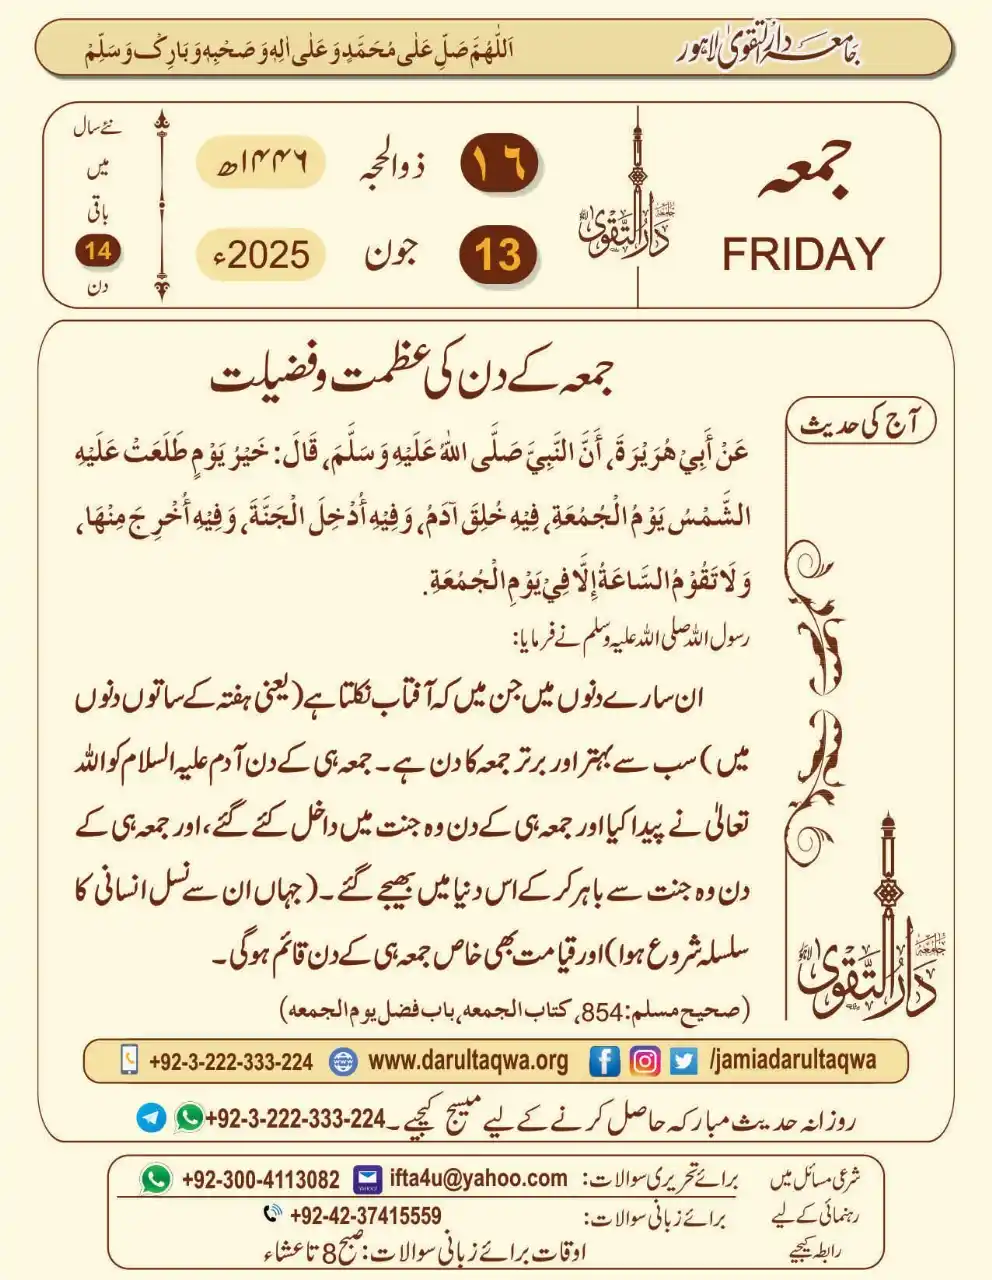 جامعہ دارالتقویٰ لاہور
اَللّٰهُمَّ صَلِّ عَلٰی مُحَمَّدٍ وَعَلٰی اٰلِهٖ وَ صَحْبِهٖ وَ بَارِکْ وَ سَلِّمْ
جمعہ
FRIDAY
جامعہ دَارُالتَّقویٰ لاہور
۱۶ ذوالحجہ ۱۴۴۶ھ
13 جون 2025ء
نئے سال
میں
باقی
14
دن
جمعہ کے دن کی عظمت و فضیلت
آج کی حدیث
عَنْ أَبِيْ هُرَيْرَةَ، أَنَّ النَّبِيَّ صَلَّى اللهُ عَلَيْهِ وَسَلَّمَ، قَالَ: خَيْرُ يَوْمٍ طَلَعَتْ عَلَيْهِ
الشَّمْسُ يَوْمُ الْجُمُعَةِ، فِيْهِ خُلِقَ آدَمُ، وَفِيْهِ أُدْخِلَ الْجَنَّةَ، وَفِيْهِ أُخْرِجَ مِنْهَا،
وَلَا تَقُوْمُ السَّاعَةُ إِلَّا فِيْ يَوْمِ الْجُمُعَةِ.
رسول اللہ صلی اللہ علیہ وسلم نے فرمایا:
ان سارے دنوں میں جن میں کہ آفتاب نکلتا ہے (یعنی ہفتہ کے ساتوں دنوں
میں) سب سے بہتر اور برتر جمعہ کا دن ہے۔ جمعہ ہی کے دن آدم علیہ السلام کو اللہ
تعالیٰ نے پیدا کیا اور جمعہ ہی کے دن وہ جنت میں داخل کئے گئے، اور جمعہ ہی کے
دن وہ جنت سے باہر کر کے اس دنیا میں بھیجے گئے۔ (جہاں ان سے نسل انسانی کا
سلسلہ شروع ہوا) اور قیامت بھی خاص جمعہ ہی کے دن قائم ہوگی۔
(صحیح مسلم: 854، کتاب الجمعہ، باب فضل یوم الجمعہ)
جامعہ دَارُالتَّقویٰ لاہور
+92-3-222-333-224 www.darultaqwa.org /jamiadarultaqwa
روزانہ حدیث مبارکہ حاصل کرنے کے لیے میسج کیجیے۔ +92-3-222-333-224
شرعی مسائل میں
رہنمائی کے لیے
رابطہ کیجیے
برائے تحریری سوالات: ifta4u@yahoo.com +92-300-4113082
برائے زبانی سوالات: +92-42-37415559
اوقات برائے زبانی سوالات: صبح 8 تا عشاء